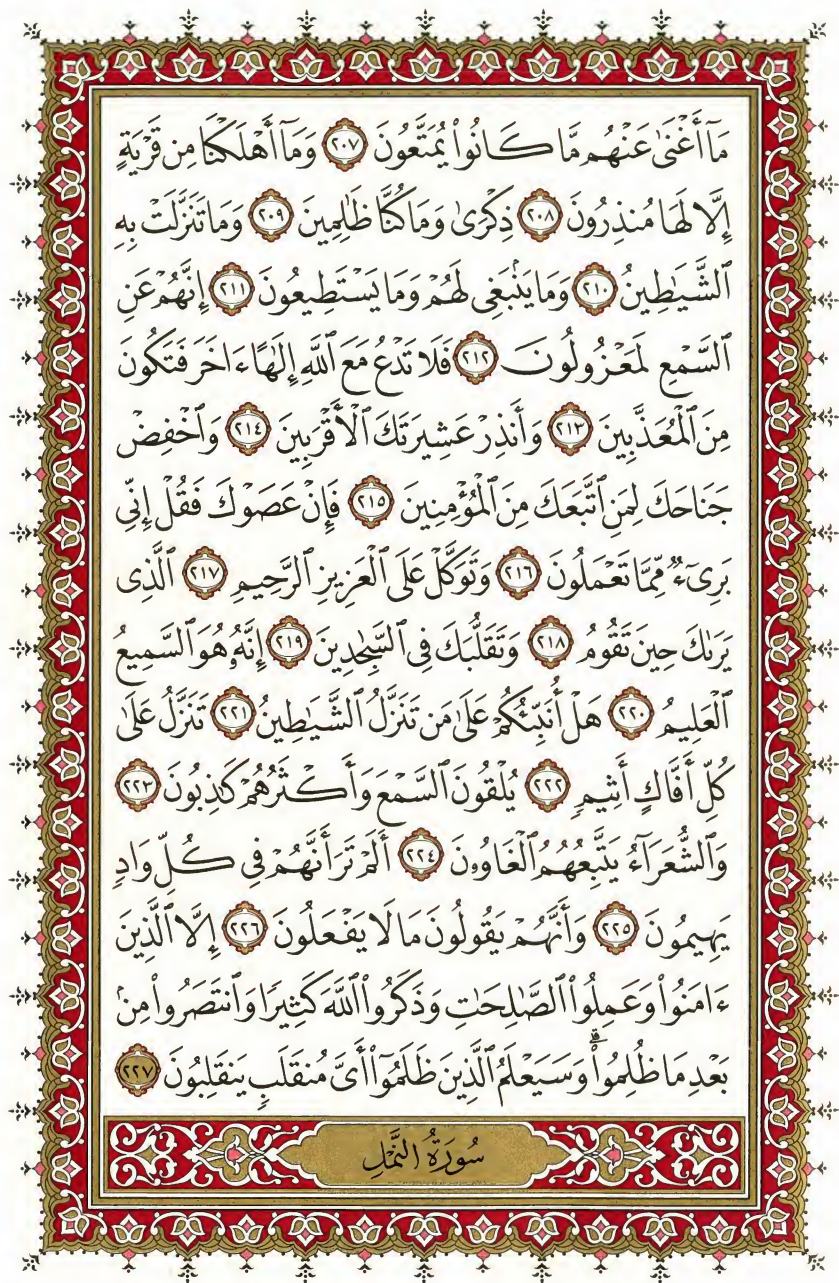 مَآ أَغْنَىٰ عَنْهُم مَّا كَانُوا۟ يُمَتَّعُونَ ﴿٢٠٧﴾ وَمَآ أَهْلَكْنَا مِن قَرْيَةٍ
إِلَّا لَهَا مُنذِرُونَ ﴿٢٠٨﴾ ذِكْرَىٰ وَمَا كُنَّا ظَٰلِمِينَ ﴿٢٠٩﴾ وَمَا تَنَزَّلَتْ بِهِ
ٱلشَّيَٰطِينُ ﴿٢١٠﴾ وَمَا يَنۢبَغِى لَهُمْ وَمَا يَسْتَطِيعُونَ ﴿٢١١﴾ إِنَّهُمْ عَنِ
ٱلسَّمْعِ لَمَعْزُولُونَ ﴿٢١٢﴾ فَلَا تَدْعُ مَعَ ٱللَّهِ إِلَٰهًا ءَاخَرَ فَتَكُونَ
مِنَ ٱلْمُعَذَّبِينَ ﴿٢١٣﴾ وَأَنذِرْ عَشِيرَتَكَ ٱلْأَقْرَبِينَ ﴿٢١٤﴾ وَٱخْفِضْ
جَنَاحَكَ لِمَنِ ٱتَّبَعَكَ مِنَ ٱلْمُؤْمِنِينَ ﴿٢١٥﴾ فَإِنْ عَصَوْكَ فَقُلْ إِنِّى
بَرِىٓءٌ مِّمَّا تَعْمَلُونَ ﴿٢١٦﴾ وَتَوَكَّلْ عَلَى ٱلْعَزِيزِ ٱلرَّحِيمِ ﴿٢١٧﴾ ٱلَّذِى
يَرَىٰكَ حِينَ تَقُومُ ﴿٢١٨﴾ وَتَقَلُّبَكَ فِى ٱلسَّٰجِدِينَ ﴿٢١٩﴾ إِنَّهُۥ هُوَ ٱلسَّمِيعُ
ٱلْعَلِيمُ ﴿٢٢٠﴾ هَلْ أُنَبِّئُكُمْ عَلَىٰ مَن تَنَزَّلُ ٱلشَّيَٰطِينُ ﴿٢٢١﴾ تَنَزَّلُ عَلَىٰ
كُلِّ أَفَّاكٍ أَثِيمٍ ﴿٢٢٢﴾ يُلْقُونَ ٱلسَّمْعَ وَأَكْثَرُهُمْ كَٰذِبُونَ ﴿٢٢٣﴾
وَٱلشُّعَرَآءُ يَتَّبِعُهُمُ ٱلْغَاوُۥنَ ﴿٢٢٤﴾ أَلَمْ تَرَ أَنَّهُمْ فِى كُلِّ وَادٍ
يَهِيمُونَ ﴿٢٢٥﴾ وَأَنَّهُمْ يَقُولُونَ مَا لَا يَفْعَلُونَ ﴿٢٢٦﴾ إِلَّا ٱلَّذِينَ
ءَامَنُوا۟ وَعَمِلُوا۟ ٱلصَّٰلِحَٰتِ وَذَكَرُوا۟ ٱللَّهَ كَثِيرًا وَٱنتَصَرُوا۟ مِنۢ
بَعْدِ مَا ظُلِمُوا۟ ۗ وَسَيَعْلَمُ ٱلَّذِينَ ظَلَمُوٓا۟ أَىَّ مُنقَلَبٍ يَنقَلِبُونَ ﴿٢٢٧﴾
سُورَةُ النَّمْلِ